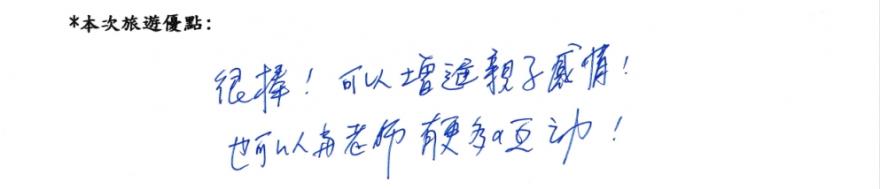 *本次旅遊優點:
很棒！可以增進親子感情！
也可以與老師有更多a互动！